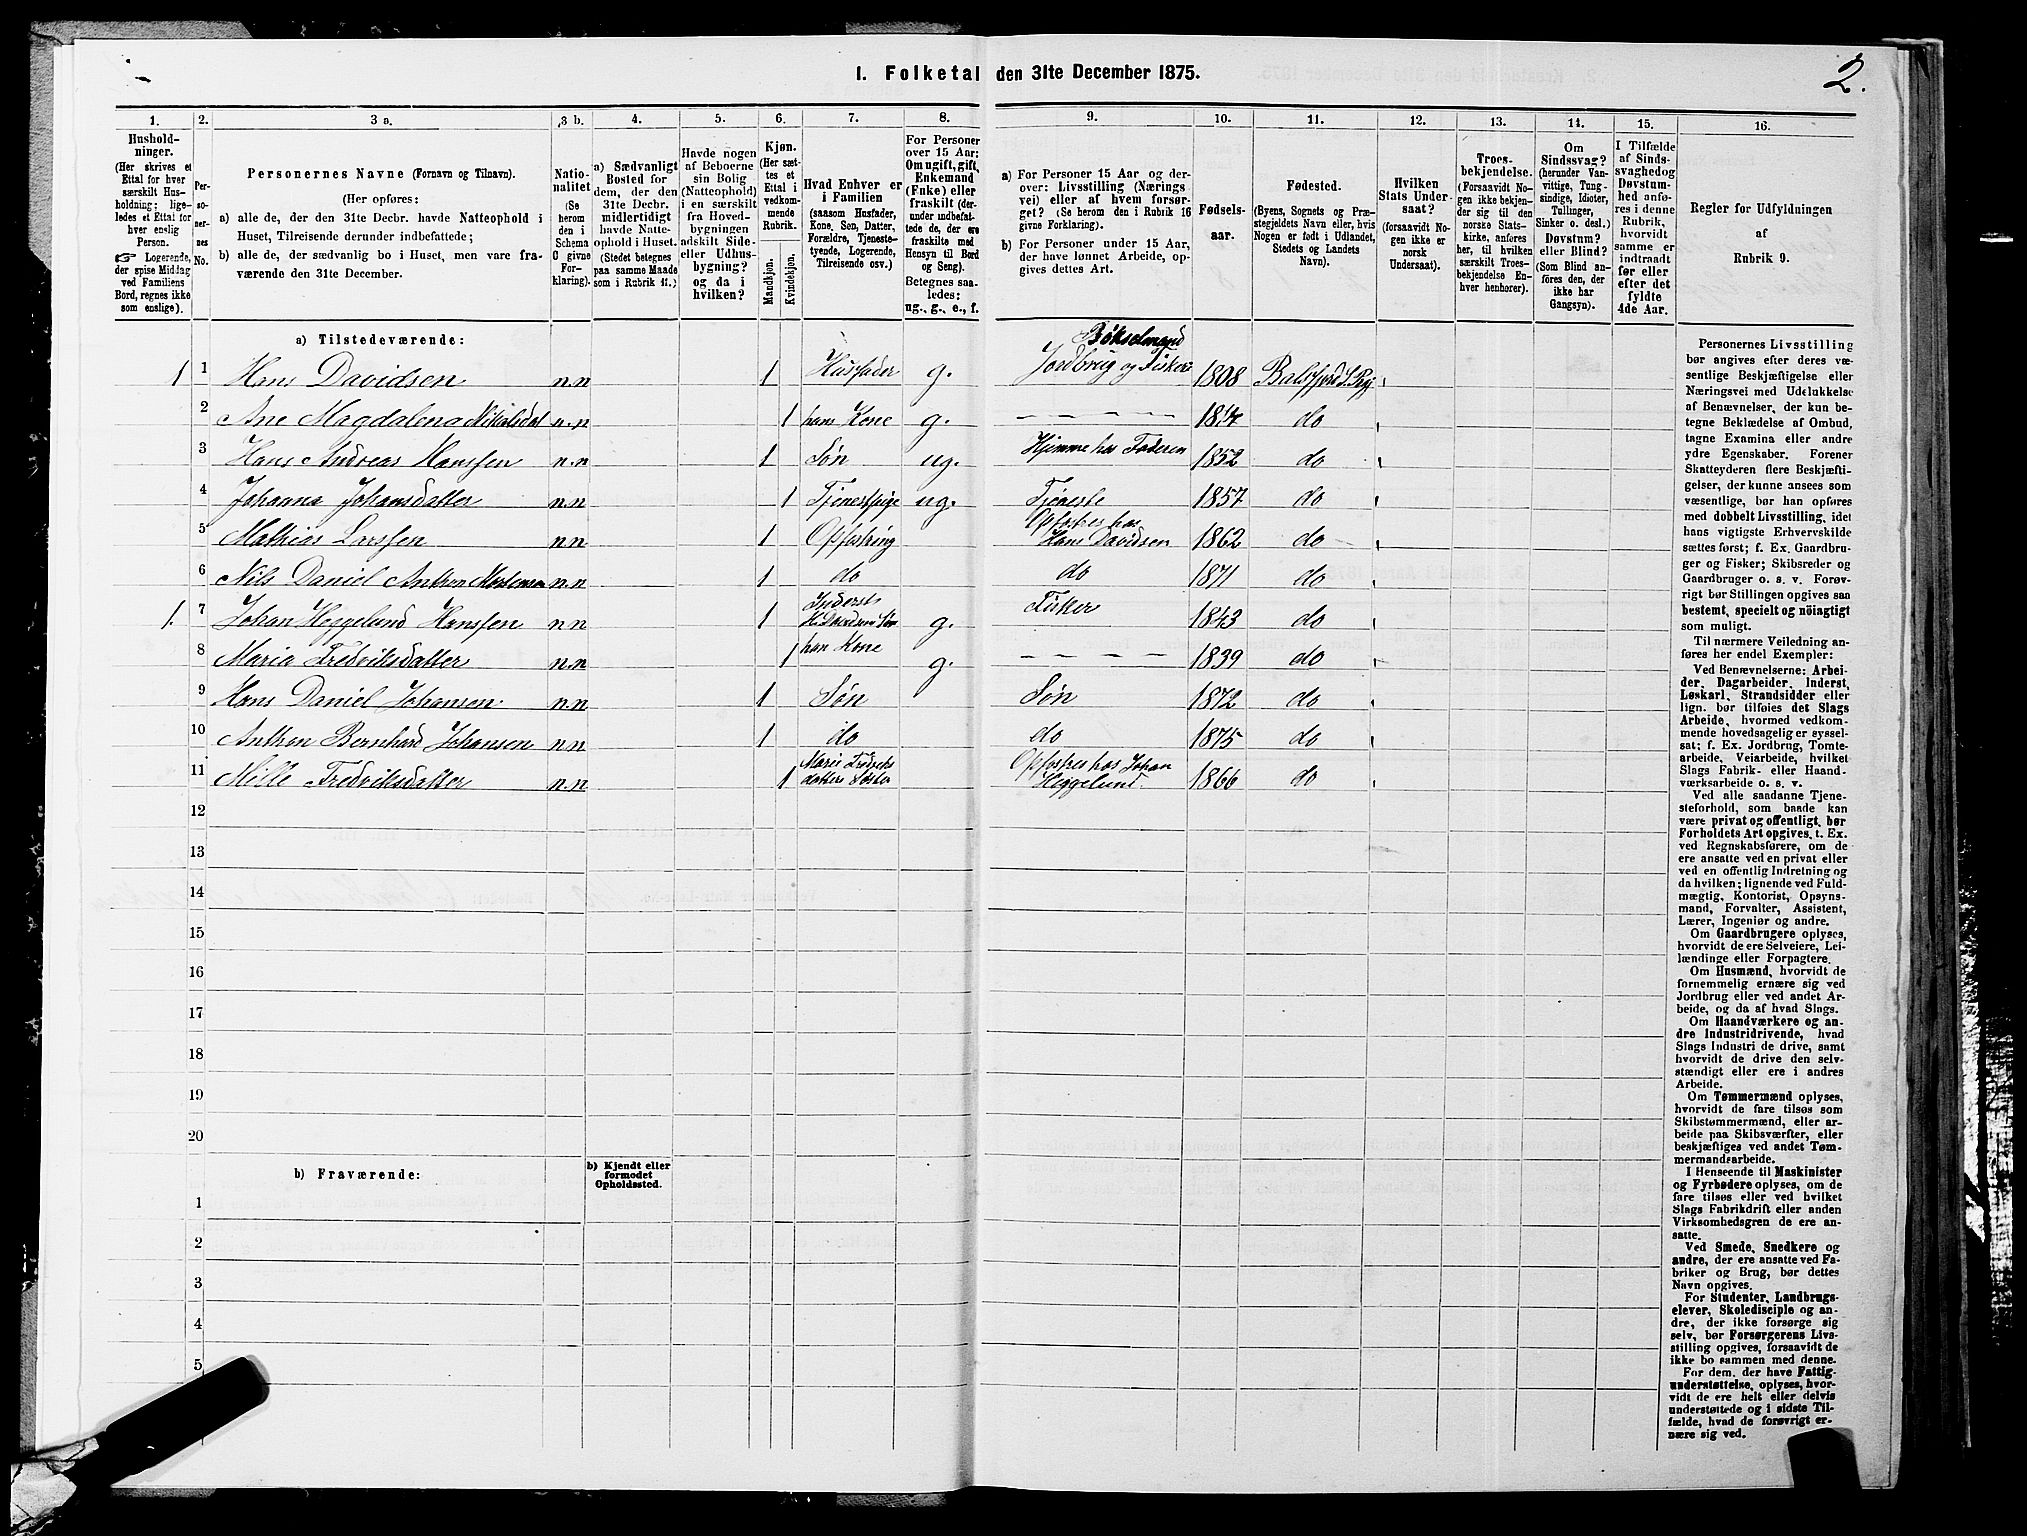 I. Folketal den 31te December 1875.
2.
1.
Hushold-
ninger.
(Her skrives et
Ettal for hver
særskilt Hus-
holdning; lige-
ledes et Ettal for
hver enslig
Person.
☞ Logerende,
der spise Middag
ved Familiens
Bord, regnes ikke
som enslige).
2.
Per-
so-
ner-
nes
No.
3 a.
Personernes Navne (Fornavn og Tilnavn).
(Her opføres:
a) alle de, der den 31te Decbr. havde Natteophold i
Huset, Tilreisende derunder indbefattede;
b) alle de, der sædvanlig bo i Huset, men vare fra-
værende den 31te December.
3 b.
Natio-
nalitet
(Se
herom
den i
Schema
O givne
For-
klaring).
4.
a) Sædvanligt
Bosted for
dem, der den
31te Decbr.
midlertidigt
havde Natte-
ophold i Huset.
(Stedet betegnes
paa samme Maade
som i Rubrik 11.)
5.
Havde nogen
af Beboerne
sin Bolig
(Natteophold)
i en særskilt
fra Hoved-
bygningen
adskilt Side-
eller Udhus-
bygning?
og da i
hvilken?
6.
Kjøn.
(Her sæt-
tes et
Ettal i
vedkom-
mende
Rubrik.
Mandkjøn.
Kvindekjøn.
7.
Hvad Enhver er
i Familien
(saasom Husfader,
Kone, Søn, Datter,
Forældre, Tjeneste-
tyende, Logerende,
Tilreisende osv.)
8.
For Personer
over 15 Aar:
Om ugift, gift,
Enkemand
(Enke) eller
fraskilt (der-
under indbefat-
tede de, der ere
fraskilte med
Hensyn til Bord
og Seng).
Betegnes saa-
ledes:
ug., g., e., f.
9.
a) For Personer 15 Aar og der-
over: Livsstilling (Nærings
vei) eller af hvem forsør-
get? (Se herom den i Rubrik 16
givne Forklaring).
b) For Personer under 15 Aar,
der have lønnet Arbeide, op-
gives dettes Art.
10.
Fødsels-
aar.
11.
Fødested.
(Byens, Sognets og Præ-
stegjeldets Navn eller, hvis
Nogen er født i Udlandet,
Stedets og Landets
Navn).
12.
Hvilken
Stats Under-
saat?
(forsaavidt No-
gen ikke er
norsk
Undersaat).
13.
Troes-
bekjendelse.
(Forsaavidt No-
gen ikke bekjen-
der sig til den
norske Stats-
kirke, anføres
her, til hvilken
særskilt Troes-
bekjendelse En-
hver henhører).
14.
Om
Sindssvag?
(herunder Van-
vittige, Tung-
sindige, Idioter,
Tullinger,
Sinker o. desl.)
Døvstum?
eller Blind?
(Som Blind an-
føres den, der
ikke har
Gangsyn).
15.
I Tilfælde
af Sinds-
svaghed og
Døvstum-
hed anfø-
res i denne
Rubrik,
hvorvidt
samme er
indtraadt
før eller
efter det
fyldte
4de Aar.
16.
Regler for Udfyldningen
af
Rubrik 9.
a) Tilstedeværende:
Bøkselmand
1 1 Hans Davidsen n.n 1 Husfader g. Jordbrug og Fisker 1808 Balsfjord S. Pgj
2 Ane Magdalena Nikolsdat n.n 1 hans Kone g. – – – – 1814 do
3 Hans Andreas Hanssen n.n 1 Søn ug. Hjemme hos Faderen 1852 do
4 Johanna Johansdatter n.n 1 Tjenestpige ug. Tjeneste 1857 do
5 Mathias Larssen n n 1 Opfostring Opfostres hos
Hans Davidsen 1862 do
6 Nils Daniel Anthon n.n 1 do do 1871 do
1. 7 Johan Heggelund Hanssen n n 1 Inderst
H. Davidsens Søn g. Fisker 1843 do
8 Maria Fredriksdatter n.n 1 hans Kone g. – – – – 1839 do
9 Hans Daniel Johansen n n 1 Søn Søn 1872 do
10 Anthon Bernhard Johansen n n 1 do do 1875 do
11 Mille Fredriksdatter n.n 1 Marie Fredriks
datters Søster Opfostres hos Johan
Heggelund. 1866 do
12
13
14
15
16
17
18
19
20
b) Fraværende:
b) Kjendt eller
formodet
Opholdssted.
1
2
3
4
5
Personernes Livsstilling
bør angives efter deres væ-
sentlige Beskjæftigelse eller
Næringsvei med Udelukkelse
af Benævnelser, der kun be-
tegne Beklædelse af Ombud,
tagne Examina eller andre
ydre Egenskaber. Forener
Skatteyderen flere Beskjæfti-
gelser, der kunne ansees som
væsentlige, bør han opføres
med dobbelt Livsstilling, idet
hans vigtigste Erhvervskilde
sættes først; f. Ex. Gaardbru-
ger og Fisker; Skibsreder og
Gaardbruger o. s. v. Forøv-
rigt bør Stillingen opgives saa
bestemt, specielt og nöiagtigt
som muligt.
Til nærmere Veiledning an-
føres her endel Exempler:
Ved Benævnelserne: Arbei-
der, Dagarbeider, Inderst,
Løskarl, Strandsidder eller
lign. bør tilføies det Slags
Arbeide, hvormed vedkom-
mende hovedsagelig er syssel-
sat; f. Ex. Jordbrug, Tomte-
arbeide, Veiarbeide, hvilket
Slags Fabrik- eller Haand-
værksarbeide o. s. v.
Ved alle saadanne Tjene-
steforhold, som baade kan
være privat og offentligt, bør
Forholdets Art opgives, t. Ex.
ved Regnskabsførere, om de
ere ansatte ved en privat eller
ved en offentlig Indretning og
da hvilken; lignende ved Fuld-
mægtig, Kontorist, Opsyns-
mand, Forvalter, Assistent,
Lærer, Ingeniør og andre.
Om Gaardbrugere oplyses,
hvorvidt de ere Selveiere, Lei-
lændinge eller Forpagtere.
Om Husmænd, hvorvidt de
fornemmelig ernære sig ved
Jordbrug eller ved andet Ar-
beide, og da af hvad Slags.
Om Haandværkere og an-
dre Industridrivende, hvad
Slags Industri de drive, samt
hvorvidt de drive den selv-
stændigt eller ere i andres
Arbeide.
Om Tømmermænd oplyses,
hvorvidt de fare tilsøs som
Skibstømmermænd, eller ar-
beide paa Skibsværfter, eller
beskjæftiges ved andet Tøm-
mermandsarbeide.
I Henseende til Maskinister
og Fyrbødere oplyses, om de
fare tilsøs eller ved hvilket
Slags Fabrikdrift eller anden
Virksomhedsgren de ere an-
satte.
Ved Smede, Snedkere og
andre, der ere ansatte ved Fa-
briker og Brug, bør dettes
Navn opgives.
For Studenter, Landbrugs-
elever, Skoledisciple og an-
dre, der ikke forsørge sig
selv, bør Forsørgerens Livs-
stilling opgives, forsaavidt de
ikke bo sammen med denne.
For dem, der have Fattig-
understøttelse, oplyses, hvor-
vidt de ere helt eller delvis
understøttede og i sidste Til-
fælde, hvad de forøvrigt er-
nære sig ved.